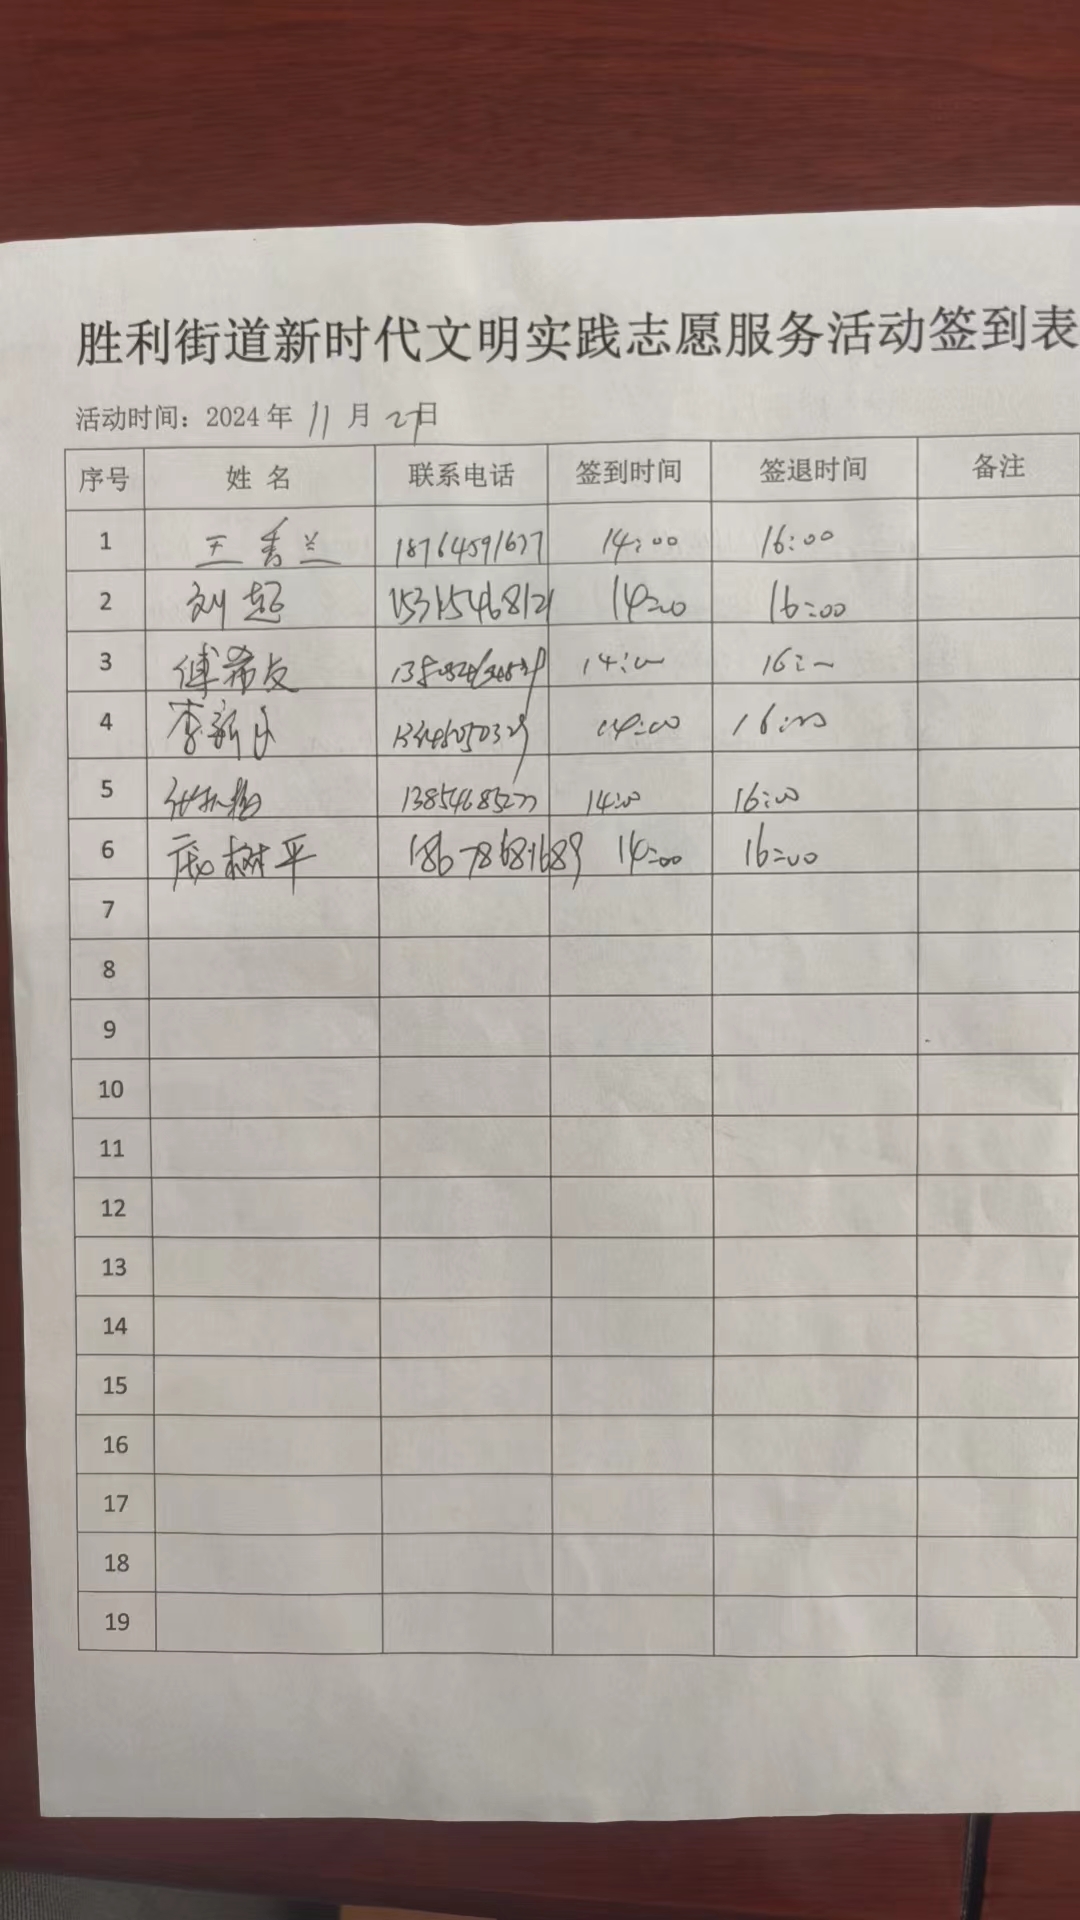 胜利街道新时代文明实践志愿服务活动签到表
活动时间：2024 年 11 月 27日
序号 姓 名 联系电话 签到时间 签退时间 备注
1 王秀兰 18764591677 14:00 16:00
2 刘超 15315468121 14:00 16:00
3 傅希友 14:00 16:00
4 李新 14:00 16:00
5 13854685277 14:00 16:00
6 庞树平 18678681689 14:00 16:00
7
8
9
10
11
12
13
14
15
16
17
18
19